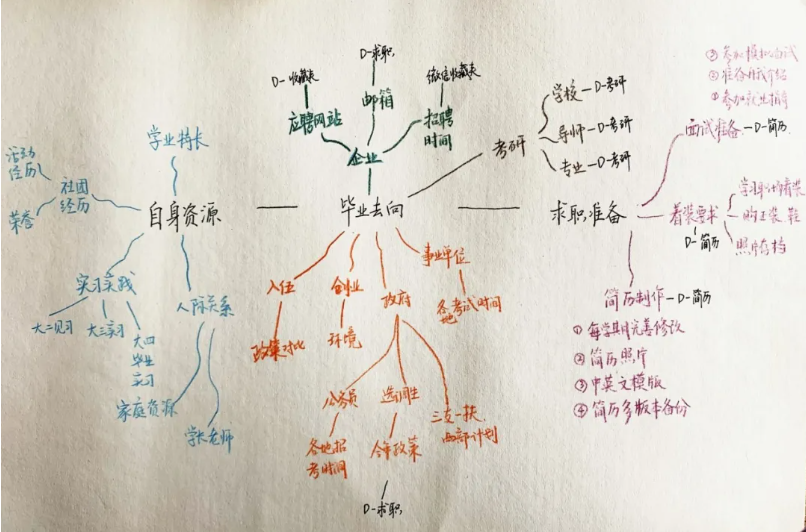 学业特长
活动
经历
社团
经历
荣誉
自身资源
实习实践
大二见习
大三实习
大四
毕业
实习
人际关系
家庭资源
学长老师
D-收藏夹
应聘网站
D-求职
邮箱
微信收藏夹
招聘
时间
企业
毕业去向
考研
学校-D-考研
导师-D-考研
专业-D-考研
入伍
政策对比
创业
环境
政府
事业单位
各考试时间
地
公务员
各地招
考时间
选调生
今年政策
三支一扶
西部计划
D-求职
求职准备
③参加模拟面试
②准备自我介绍
①参加就业指导
面试准备-D-简历
着装要求
D-简历
学习职业着装
购正装、鞋
照片存档
简历制作-D-简历
①每学期完善修改
②简历照片
③中英文模版
④简历多版本备份